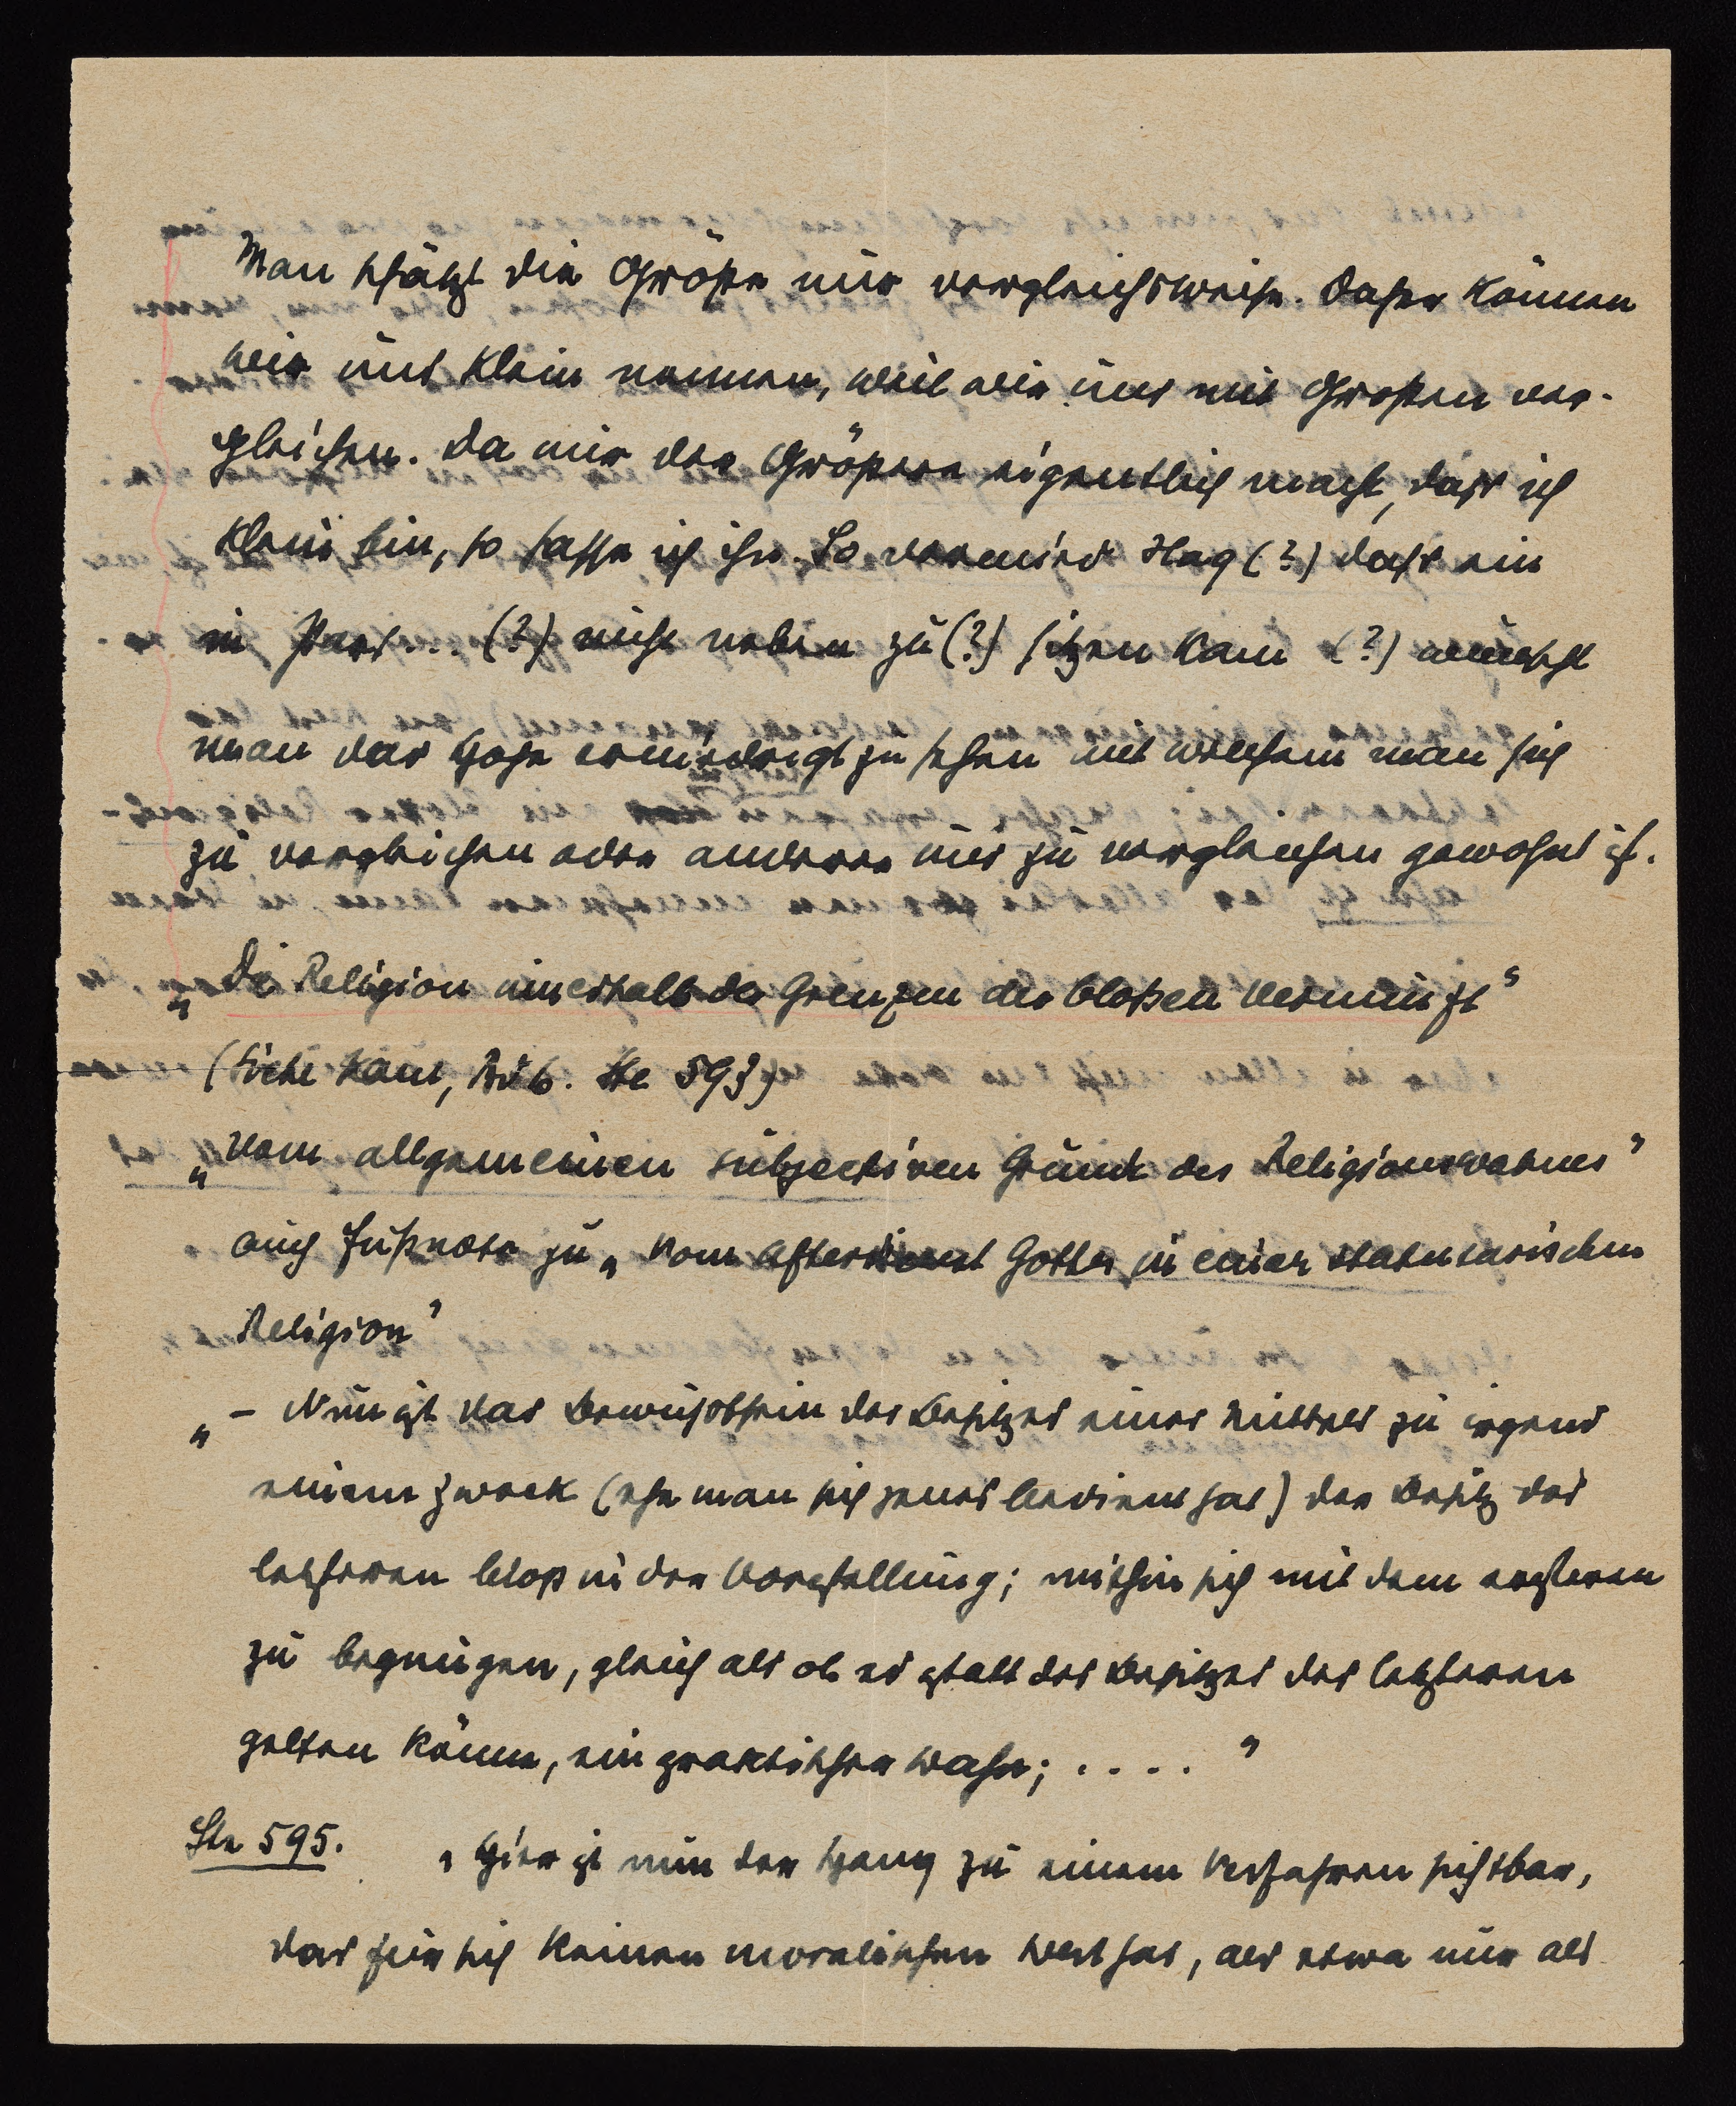 Man schätzt die Größe nur vergleichsweise. Daher können
wir uns klein nennen, weil wir uns mit Großen ver-
gleichen. Da mir der Größere eigentlich macht, dass ich
klein bin, so hasse ich ihn. So (?) dass ein
in (?) nicht neben zu (?) sitzen kam (?) wünscht
man das Hohe erniedrigt zu sehen mit welchem man sich
zu vergleichen oder andere uns zu vergleichen gewohnt ist.
„Die Religion innerhalb der Grenzen der bloßen Vernunft"
(Siehe Kant, Bib. Ste 593)
„Vom allgemeinen subjectiven Grunde des Religionswahnes"
auch Fußnote zu „Vom Afterdienst Gottes in einer statutarischen
Religion"
„– Nun ist das Bewusstsein des Besitzes eines Mittels zu irgend
einem Zweck (ehe man sich jenes bedient hat) der Besitz des
letzteren bloß in der Vorstellung; mithin sich mit dem ersteren
zu begnügen, gleich als ob es statt des Besitzes des letzteren
gelten könne, ein praktischer Wahn; . . . . "
Ste 595. „Hier ist nun der Hang zu einem Verfahren sichtbar,
das für sich keinen moralischen Wert hat, als etwa nur als